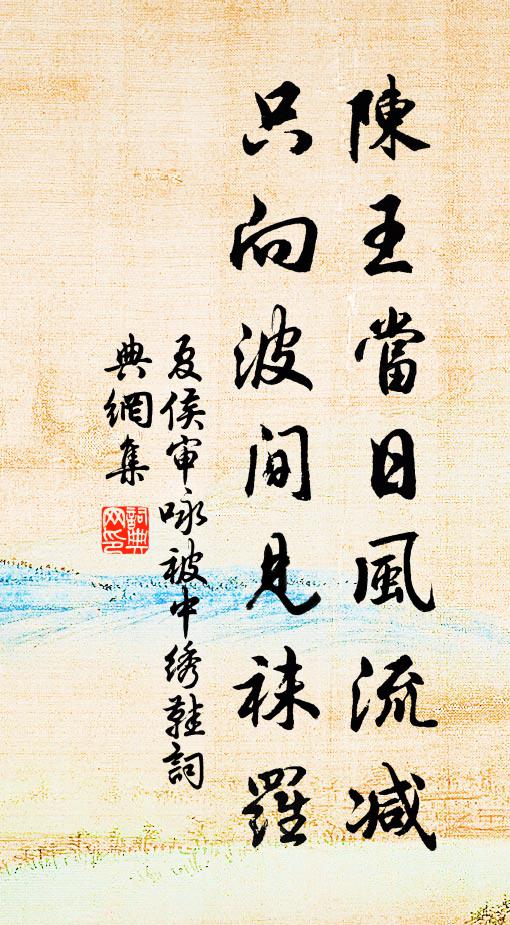 陳王當日風流減
只向波間見袜羅
夏侯审咏被中绣鞋詞
典網集
詞典
网印